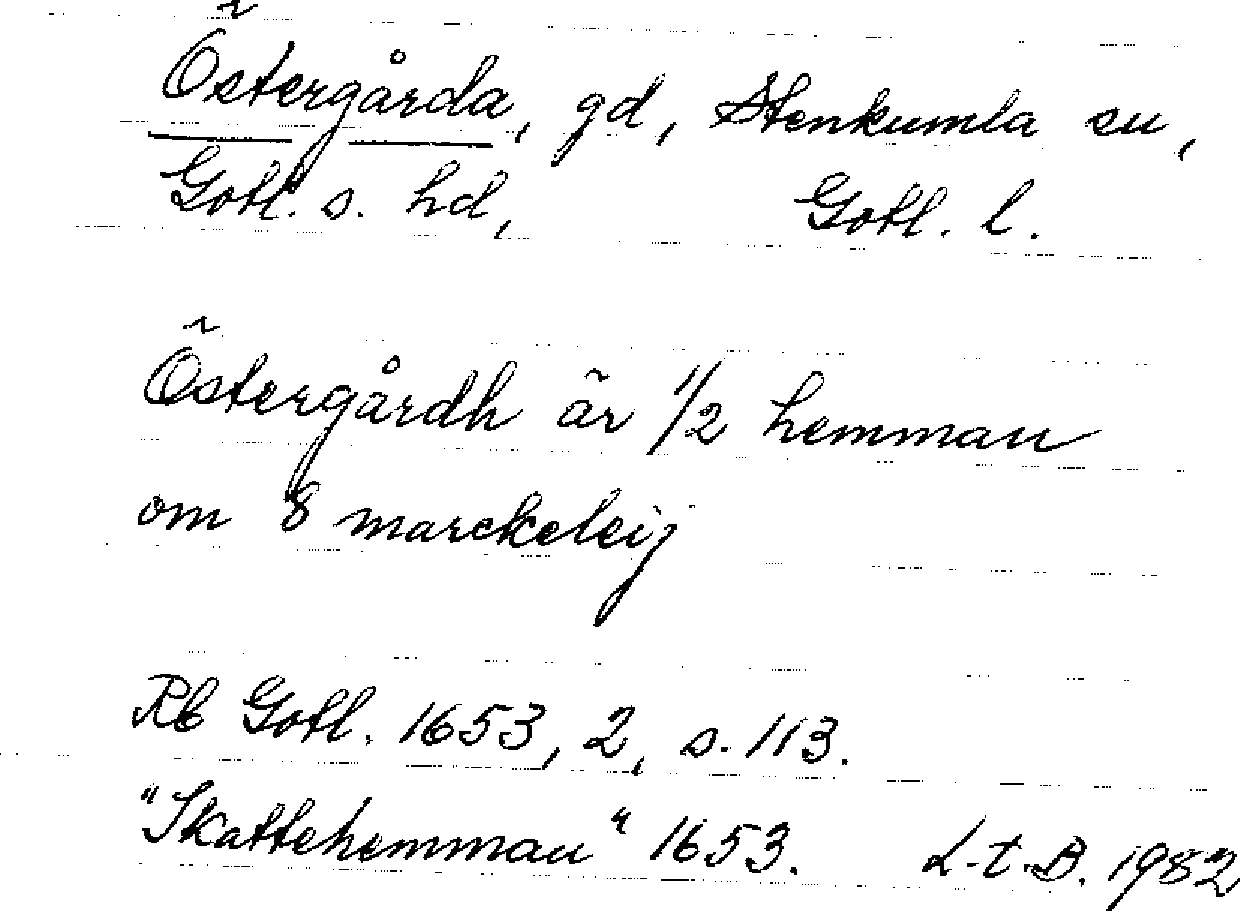 Östergårda, gd, Stenkumla sn,
Gotl. s. hd, Gotl. l.
Östergårdh är 1/2 hemman
om 8 marckeleij
Rb Gotl. 1653, 2, s. 113.
"Skattehemman" 1653. L-t.B. 1982